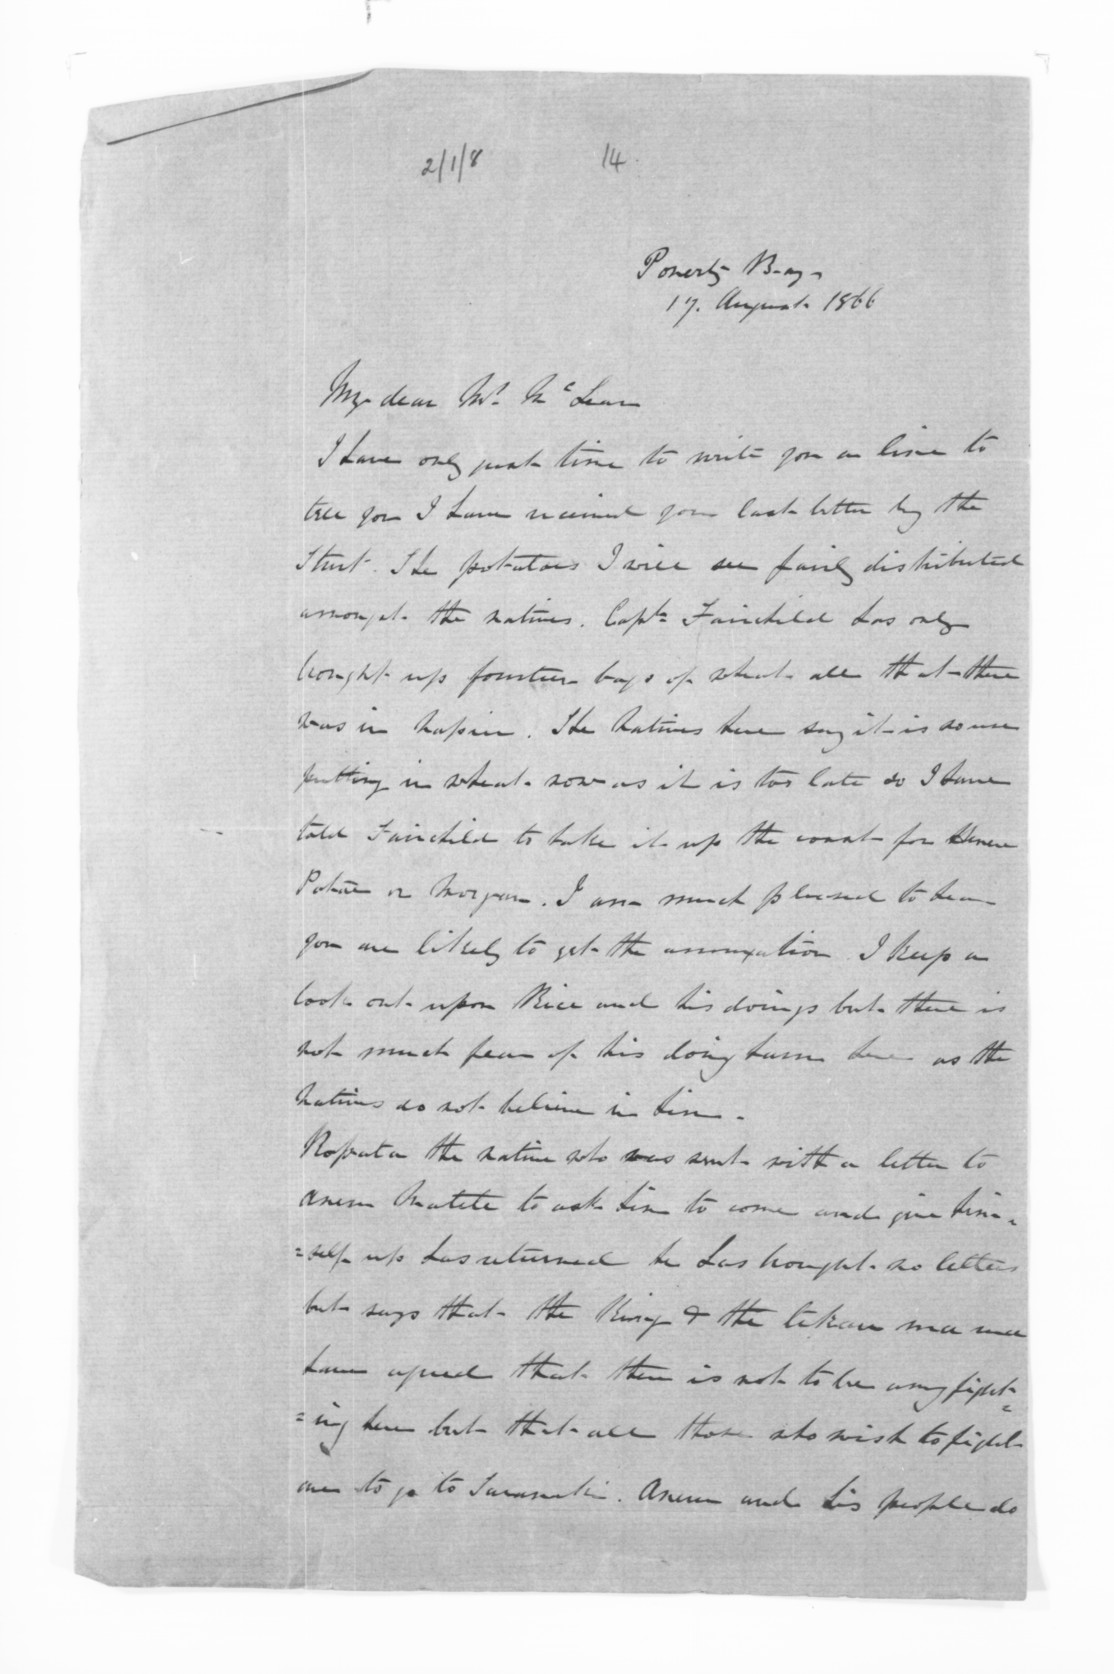 2/1/8 14
Poverty Bay
17. August 1866
My dear Mr. McLean
I have only just time to write you a line to
tell you I have received your last letter by the
Sturt. The potatoes I will see fairly distributed
amongst the natives. Captn Fairchild has only
bought up fourteen bags of wheat all that there
was in Napier. The Natives here say it is no use
putting in wheat now as it is too late so I have
told Fairchild to take it up the coast for Henere
Potae or Morgan. I am much pleased to hear
you are likely to get the annexation I keep a
look out upon Rice and his doings but there is
not much fear of his doing harm here as the
Natives do not believe in him.
Ropata the native who was sent with a letter to
Anaru Matete to ask him to come and give him=
=self up has returned he has bought no letters
but says that the King & the
have agreed that there is not to be any fight=
=ing here but that all those who wish to fight
are to go to Taranaki. Anaru and his people do